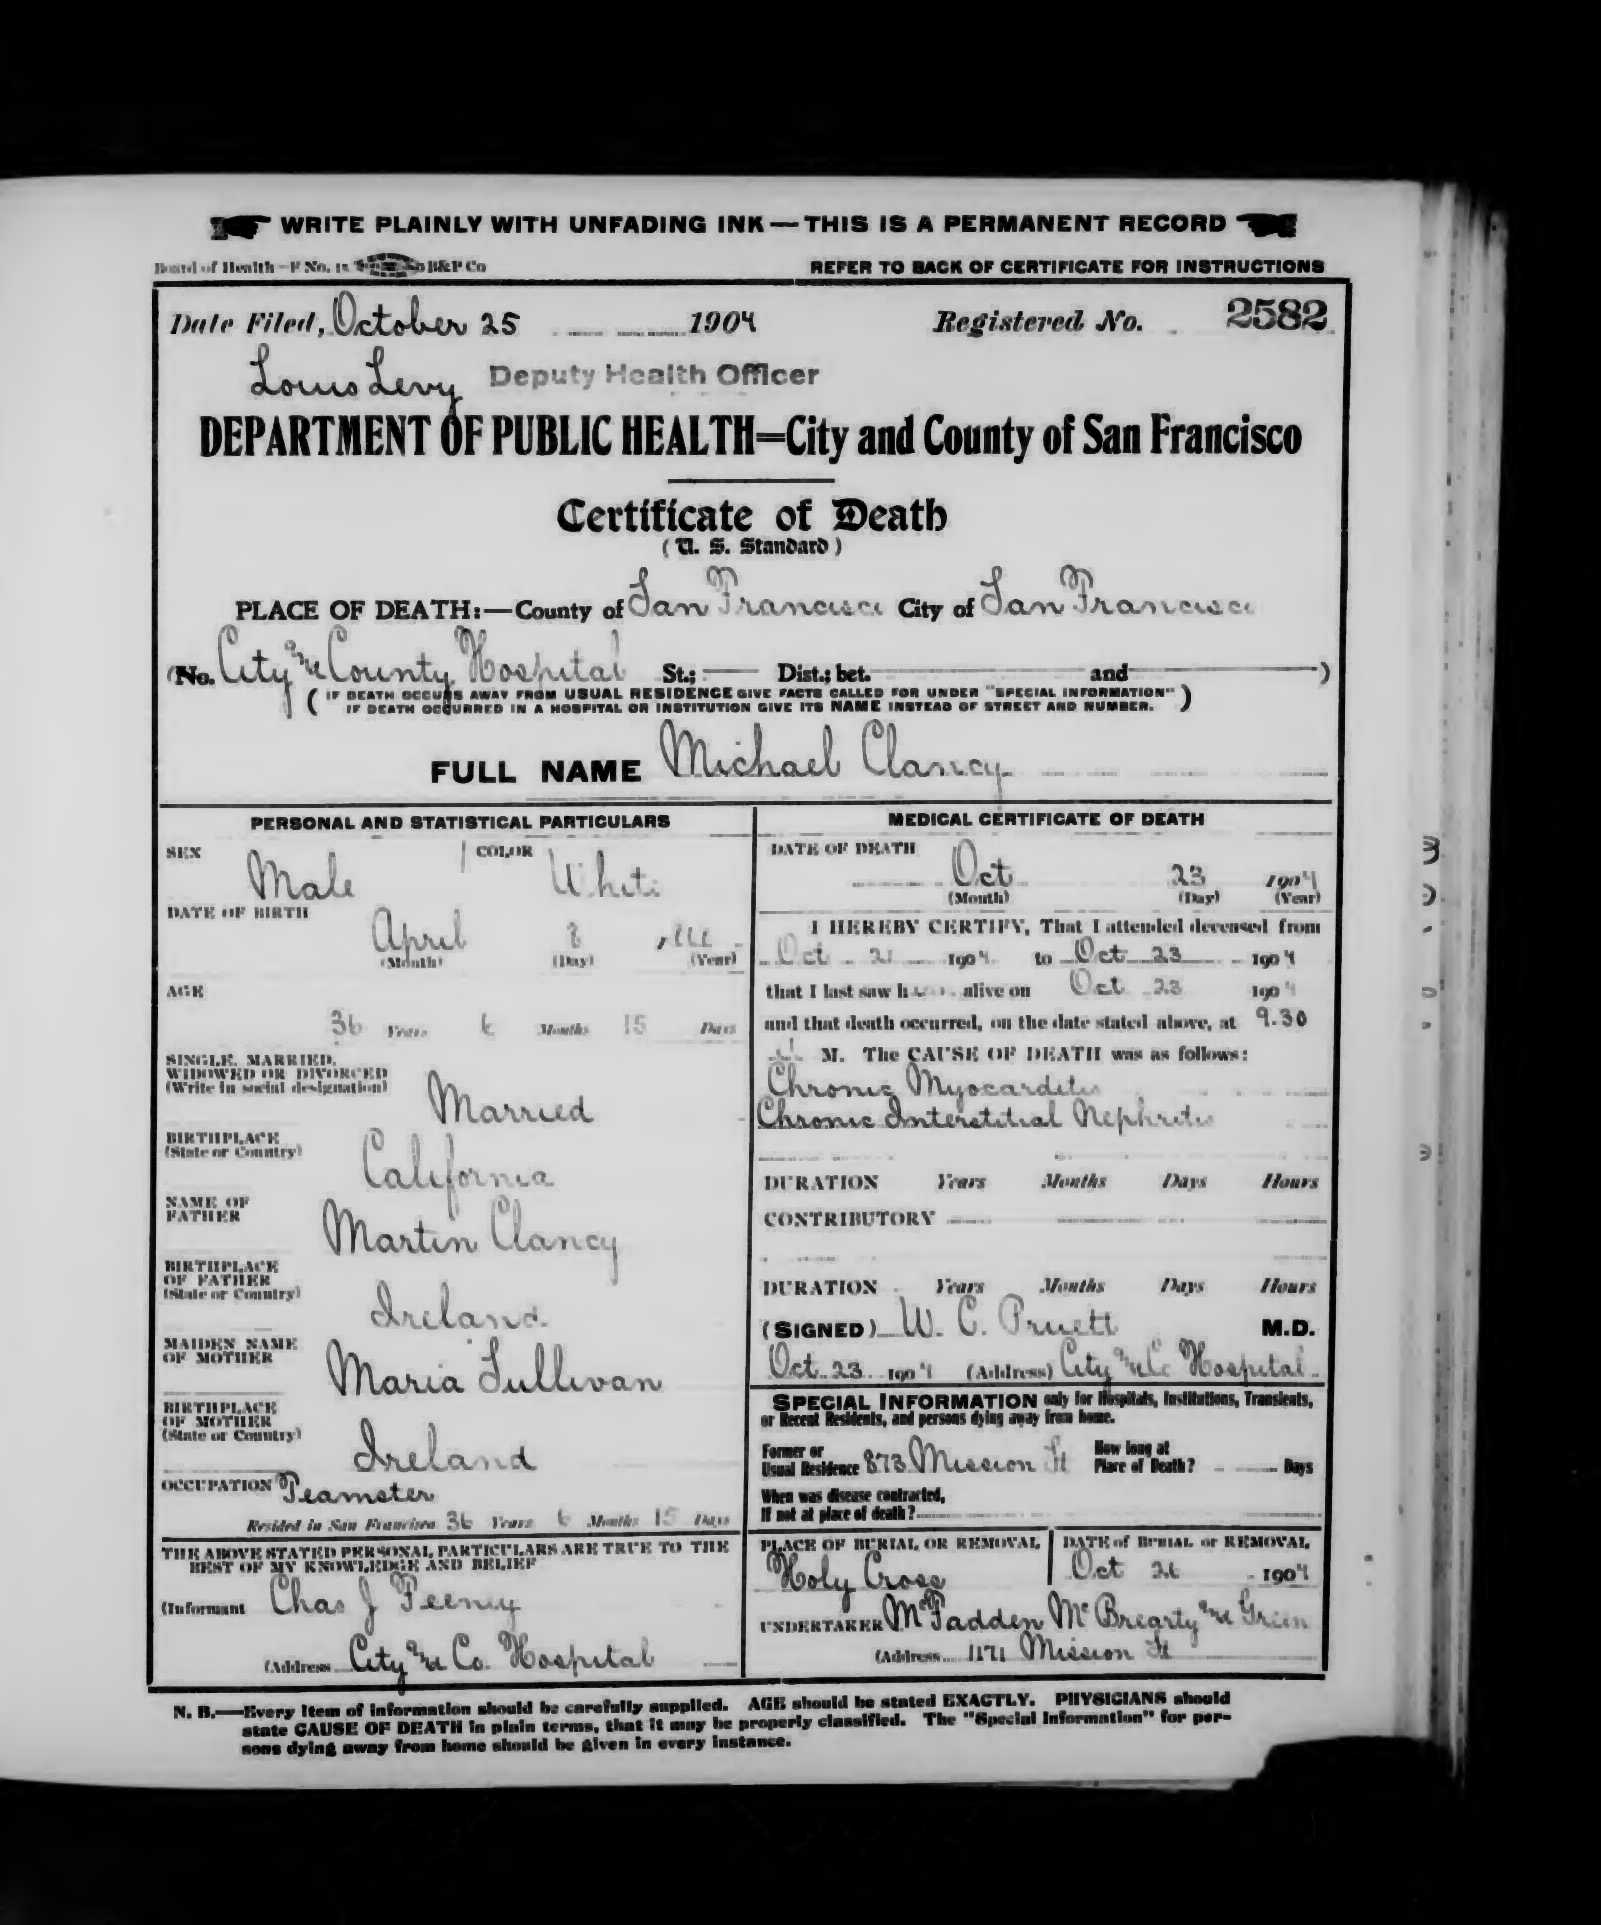 WRITE PLAINLY WITH UNFADING INK — THIS IS A PERMANENT RECORD
Board of Health—F No. 15 B&P Co
REFER TO BACK OF CERTIFICATE FOR INSTRUCTIONS
Date Filed, October 25 1904 Registered No. 2582
Louis Levy Deputy Health Officer
DEPARTMENT OF PUBLIC HEALTH=City and County of San Francisco
Certificate of Death
(U. S. Standard)
PLACE OF DEATH:—County of San Francisco City of San Francisco
(No. City and County Hospital St.; Dist.; bet. and )
( IF DEATH OCCURS AWAY FROM USUAL RESIDENCE GIVE FACTS CALLED FOR UNDER "SPECIAL INFORMATION"
IF DEATH OCCURRED IN A HOSPITAL OR INSTITUTION GIVE ITS NAME INSTEAD OF STREET AND NUMBER. )
FULL NAME Michael Clancy
PERSONAL AND STATISTICAL PARTICULARS
SEX Male COLOR White
DATE OF BIRTH
April 8
(Month) (Day) (Year)
AGE
36 Years 6 Months 15 Days
SINGLE, MARRIED,
WIDOWED OR DIVORCED
(Write in social designation)
Married
BIRTHPLACE
(State or Country)
California
NAME OF
FATHER
Martin Clancy
BIRTHPLACE
OF FATHER
(State or Country)
Ireland
MAIDEN NAME
OF MOTHER
Maria Sullivan
BIRTHPLACE
OF MOTHER
(State or Country)
Ireland
OCCUPATION Teamster
Resided in San Francisco 36 Years 6 Months 15 Days
THE ABOVE STATED PERSONAL PARTICULARS ARE TRUE TO THE
BEST OF MY KNOWLEDGE AND BELIEF
(Informant Chas J Feeney
(Address City and Co. Hospital
MEDICAL CERTIFICATE OF DEATH
DATE OF DEATH
Oct 23 1904
(Month) (Day) (Year)
I HEREBY CERTIFY, That I attended deceased from
Oct 21 1904 to Oct 23 1904
that I last saw h alive on Oct 23 1904
and that death occurred, on the date stated above, at 9.30
M. The CAUSE OF DEATH was as follows:
Chronic Myocarditis
Chronic Interstitial Nephritis
DURATION Years Months Days Hours
CONTRIBUTORY
DURATION Years Months Days Hours
(SIGNED) W. C. Pruett M.D.
Oct 23 1904 (Address) City and Co Hospital
SPECIAL INFORMATION only for Hospitals, Institutions, Transients,
or Recent Residents, and persons dying away from home.
Former or
Usual Residence 873 Mission St
How long at
Place of Death? Days
When was disease contracted,
If not at place of death?
PLACE OF BURIAL OR REMOVAL
Holy Cross
DATE of BURIAL or REMOVAL
Oct 26 1904
UNDERTAKER McFadden McBrearty and Green
(Address 1171 Mission St
N. B.—Every item of information should be carefully supplied. AGE should be stated EXACTLY. PHYSICIANS should
state CAUSE OF DEATH in plain terms, that it may be properly classified. The "Special Information" for per-
sons dying away from home should be given in every instance.